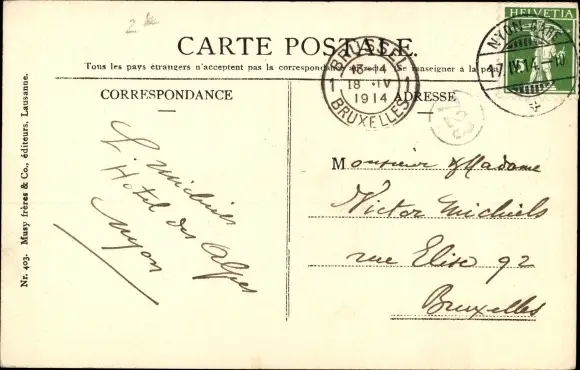 2.-
CARTE POSTALE.
Tous les pays étrangers n'acceptent pas la correspondance au recto. Se renseigner à la poste
CORRESPONDANCE
ADRESSE
HELVETIA
5
NYON
17.IV.14.-10
BRUSSEL
13-4
1 18 -IV
1914
BRUXELLES
Michiels
Hotel des Alpes
Nyon
Monsieur & Madame
Victor Michiels
rue Elise 92
Bruxelles
Nr. 403. Musy frères & Co., éditeurs, Lausanne.